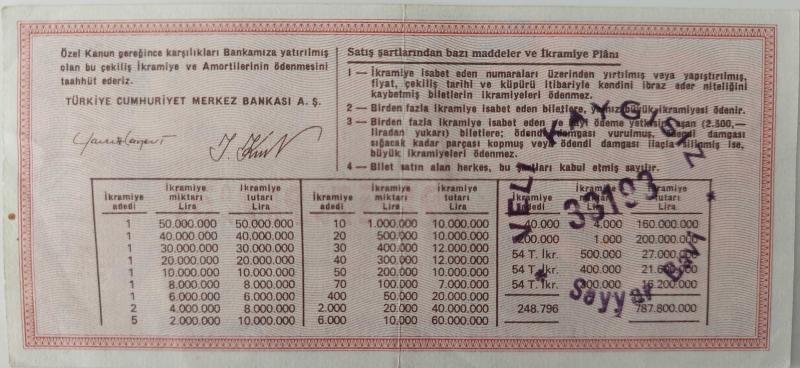 Özel Kanun gereğince karşılıkları Bankamıza yatırılmış
olan bu çekiliş İkramiye ve Amortilerinin ödenmesini
taahhüt ederiz.
TÜRKİYE CUMHURİYET MERKEZ BANKASI A. Ş.
Satış şartlarından bazı maddeler ve İkramiye Plânı
1 — İkramiye isabet eden numaraları üzerinden yırtılmış veya yapıştırılmış,
fiyat, çekiliş tarihi ve küpürü itibariyle kendini ibraz eder niteliğini
kaybetmiş biletlerin ikramiyeleri ödenmez.
2 — Birden fazla ikramiye isabet eden biletlere, yalnız büyük ikramiyesi ödenir.
3 — Birden fazla ikramiye isabet eden ve bayi ödeme yetkisini aşan (2.500,—
liradan yukarı) biletlere; ödendi damgası vurulmuş, ödendi damgası
sığacak kadar parçası kopmuş veya ödendi damgası ilaçla silinmiş ise,
büyük ikramiyeleri ödenmez.
4 — Bilet satın alan herkes, bu şartları kabul etmiş sayılır.
İkramiye adedi İkramiye miktarı Lira İkramiye tutarı Lira İkramiye adedi İkramiye miktarı Lira İkramiye tutarı Lira İkramiye adedi İkramiye miktarı Lira İkramiye tutarı Lira
1 50.000.000 50.000.000 10 1.000.000 10.000.000 40.000 4.000 160.000.000
1 40.000.000 40.000.000 20 500.000 10.000.000 200.000 1.000 200.000.000
1 30.000.000 30.000.000 30 400.000 12.000.000 54 T. İkr. 500.000 27.000.000
1 20.000.000 20.000.000 40 300.000 12.000.000 54 T. İkr. 400.000 21.600.000
1 10.000.000 10.000.000 50 200.000 10.000.000 54 T. İkr. 300.000 16.200.000
1 8.000.000 8.000.000 70 100.000 7.000.000
1 6.000.000 6.000.000 400 50.000 20.000.000
2 4.000.000 8.000.000 2.000 20.000 40.000.000 248.796 787.800.000
5 2.000.000 10.000.000 6.000 10.000 60.000.000
VELİ KAYGISIZ
33193
* Sayyar Bayi *